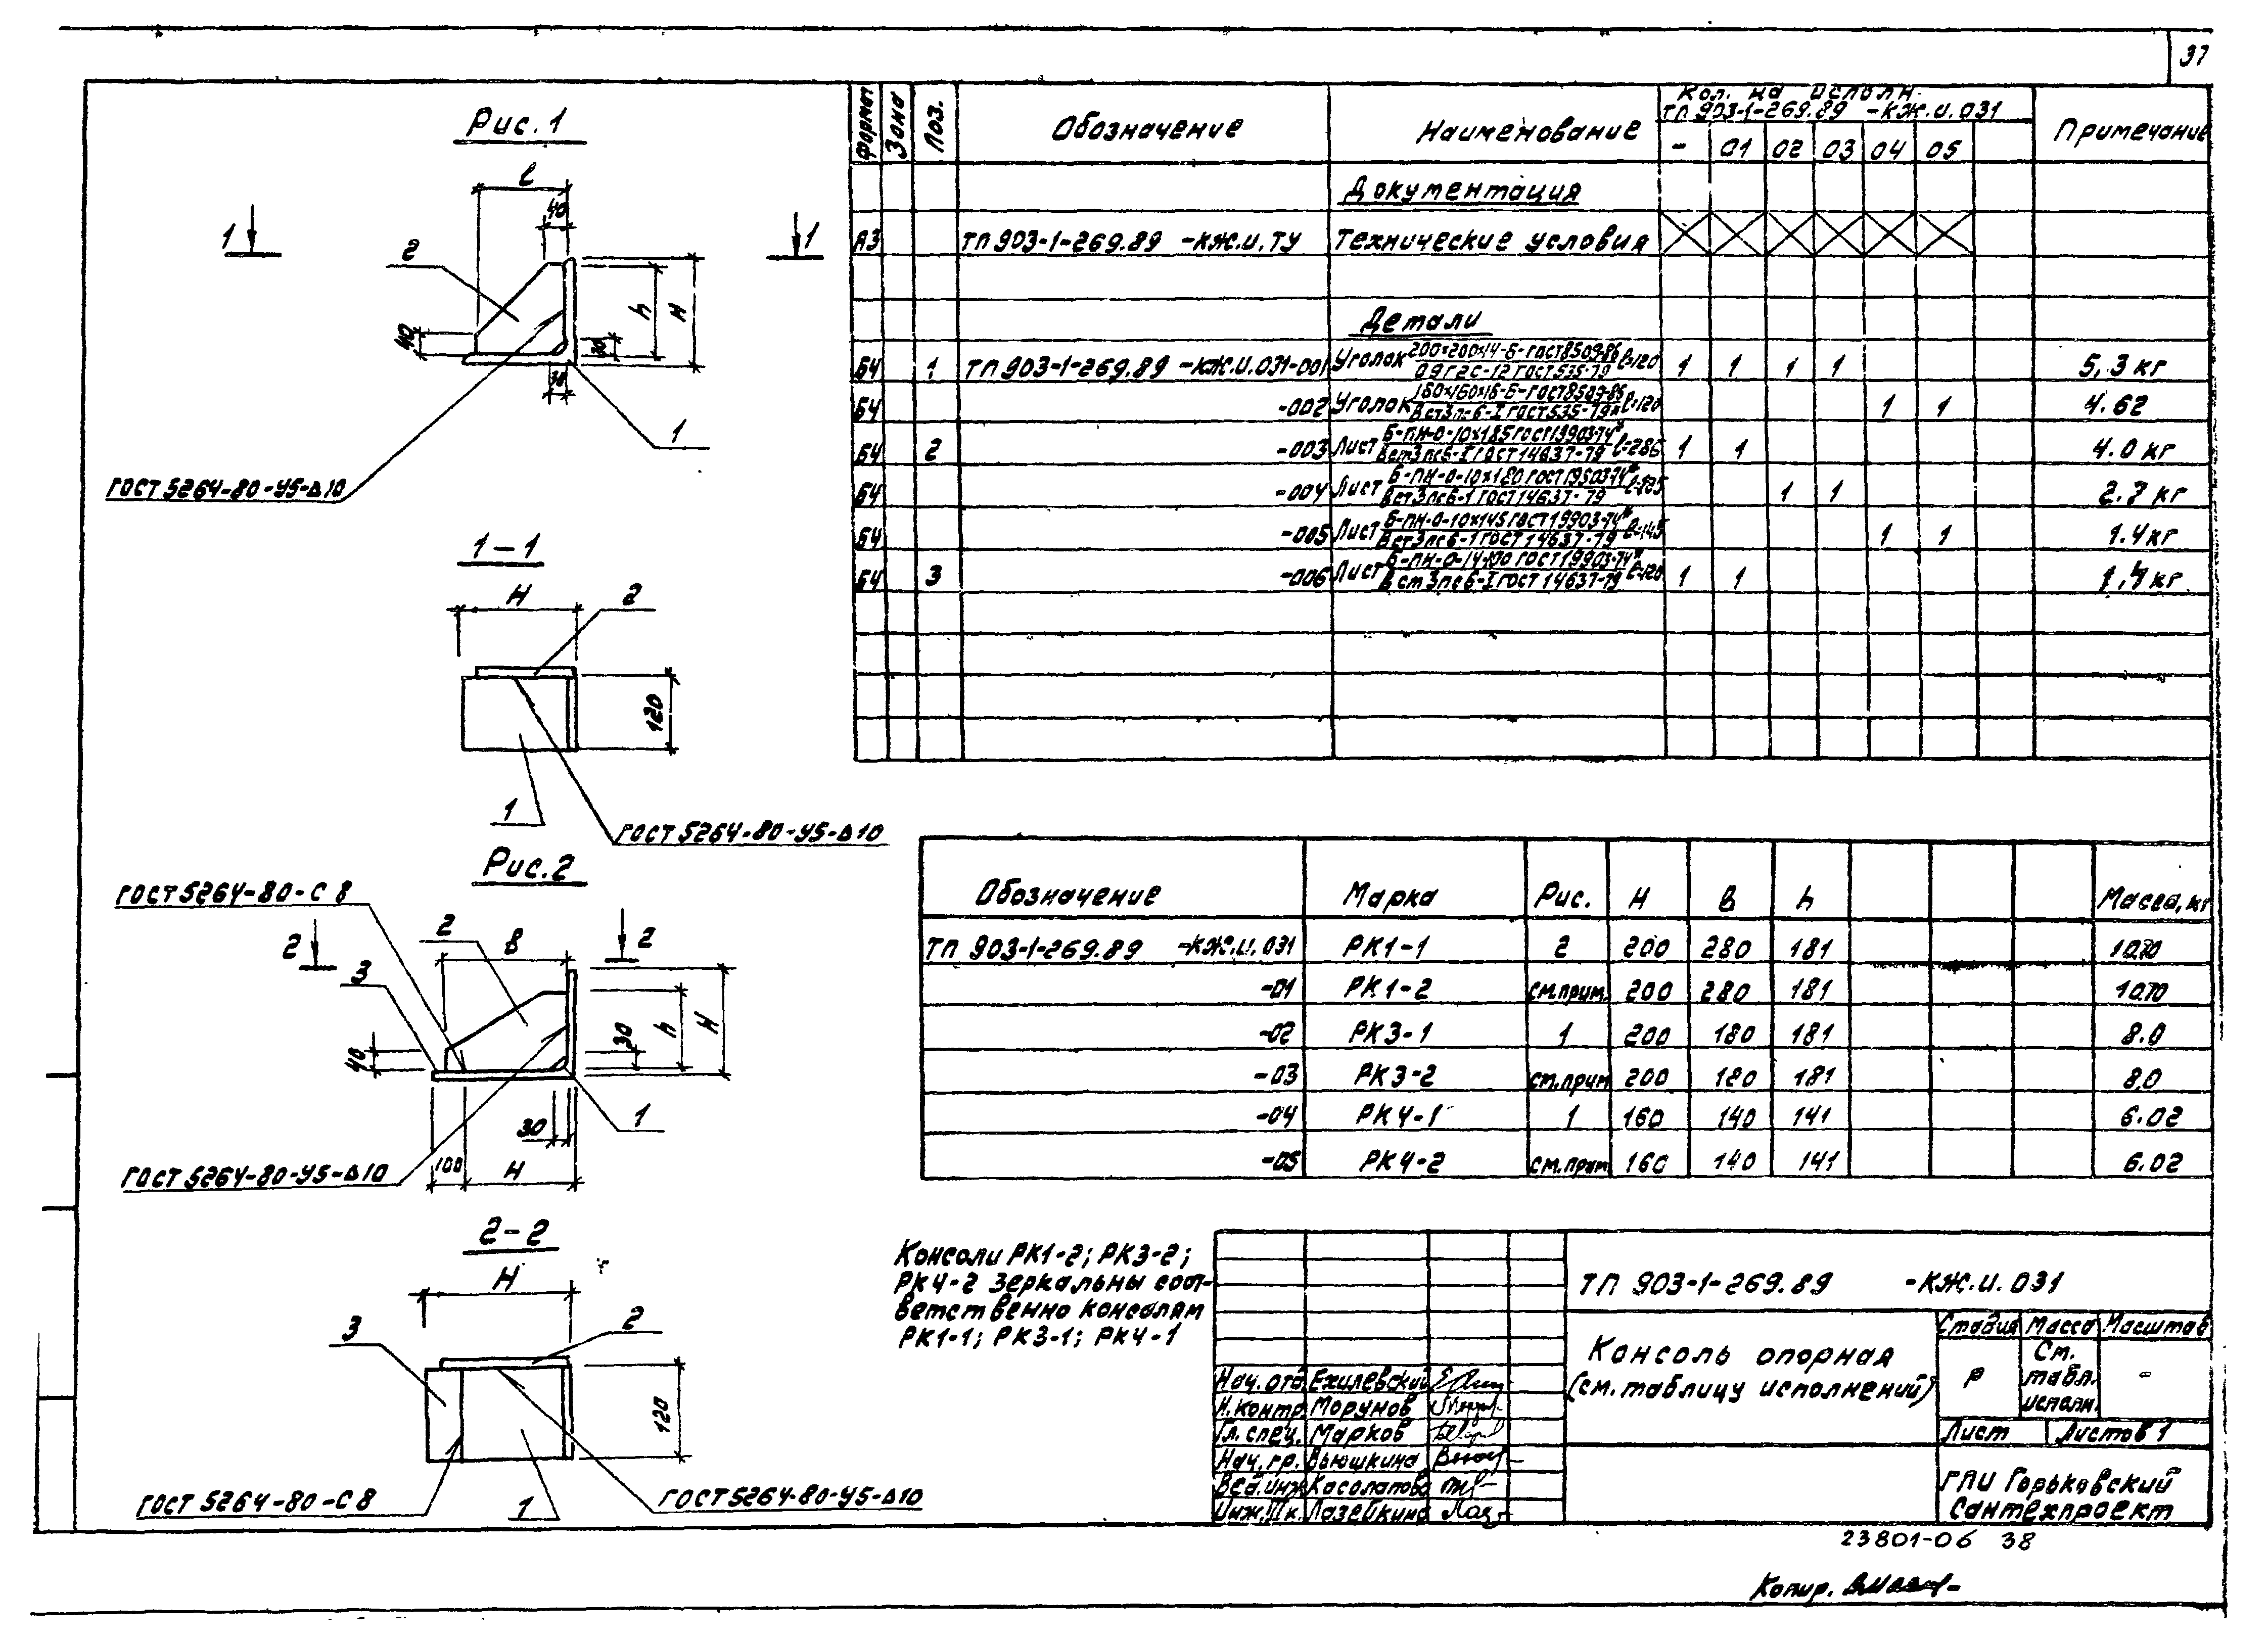 37
Рис. 1
ℓ
40
1
1
2
h
H
40
30
30
1
ГОСТ 5264-80-У5-Δ10
1-1
H
2
120
1
ГОСТ 5264-80-У5-Δ10
Рис. 2
ГОСТ 5264-80-С 8
2
2
2
3
в
h
H
30
40
30
1
100
H
ГОСТ 5264-80-У5-Δ10
2-2
H
3
2
120
1
ГОСТ 5264-80-С8
ГОСТ 5264-80-У5-Δ10
Формат Зона Поз. Обозначение Наименование Кол. на исполн. Примечание
ТП 903-1-269.89 -КЖ.И.031
- 01 02 03 04 05
Документация
А3 ТП 903-1-269.89 -КЖ.И.ТУ Технические условия
Детали
Б4 1 ТП 903-1-269.89 -КЖ.И.031-001 Уголок 200×200×14-Б-ГОСТ 8509-86 / 09Г2С-12 ГОСТ 535-79 ℓ=120 1 1 1 1 5,3 кг
Б4 -002 Уголок 160×160×16-Б-ГОСТ 8509-86 / ВСт3пс6-I ГОСТ 535-79 ℓ=120 1 1 4.62
Б4 2 -003 Лист Б-ПН-О-10×185 ГОСТ 19903-74* / ВСт3пс6-I ГОСТ 14637-79 ℓ=286 1 1 4.0 кг
Б4 -004 Лист Б-ПН-О-10×180 ГОСТ 19903-74* / ВСт3пс6-I ГОСТ 14637-79 1 1 2.7 кг
Б4 -005 Лист Б-ПН-О-10×145 ГОСТ 19903-74* / ВСт3пс6-I ГОСТ 14637-79 ℓ=145 1 1 1.4 кг
Б4 3 -006 Лист Б-ПН-О-14×100 ГОСТ 19903-74* / ВСт3пс6-I ГОСТ 14637-79 ℓ=120 1 1 1,4 кг
Обозначение Марка Рис. H В h Масса, кг
ТП 903-1-269.89 -КЖ.И.031 РК1-1 2 200 280 181 10.70
-01 РК1-2 см.прим. 200 280 181 10.70
-02 РК3-1 1 200 180 181 8.0
-03 РК3-2 см.прим 200 180 181 8.0
-04 РК4-1 1 160 140 141 6.02
-05 РК4-2 см.прим 160 140 141 6.02
Консоли РК1-2; РК3-2;
РК4-2 зеркальны соот-
ветственно консолям
РК1-1; РК3-1; РК4-1
ТП 903-1-269.89 -КЖ.И.031
Консоль опорная
(см. таблицу исполнений)
Стадия Масса Масштаб
Р См. табл. исполн. -
Лист Листов 1
Нач. отд Ехилевский
Н.контр. Морунов
Гл. спец. Марков
Нач. гр. Вьюшкина
Вед.инж Касолапова
Инж. IIк. Лазейкина
ГПИ Горьковский
Сантехпроект
23801-06 38
Копир.